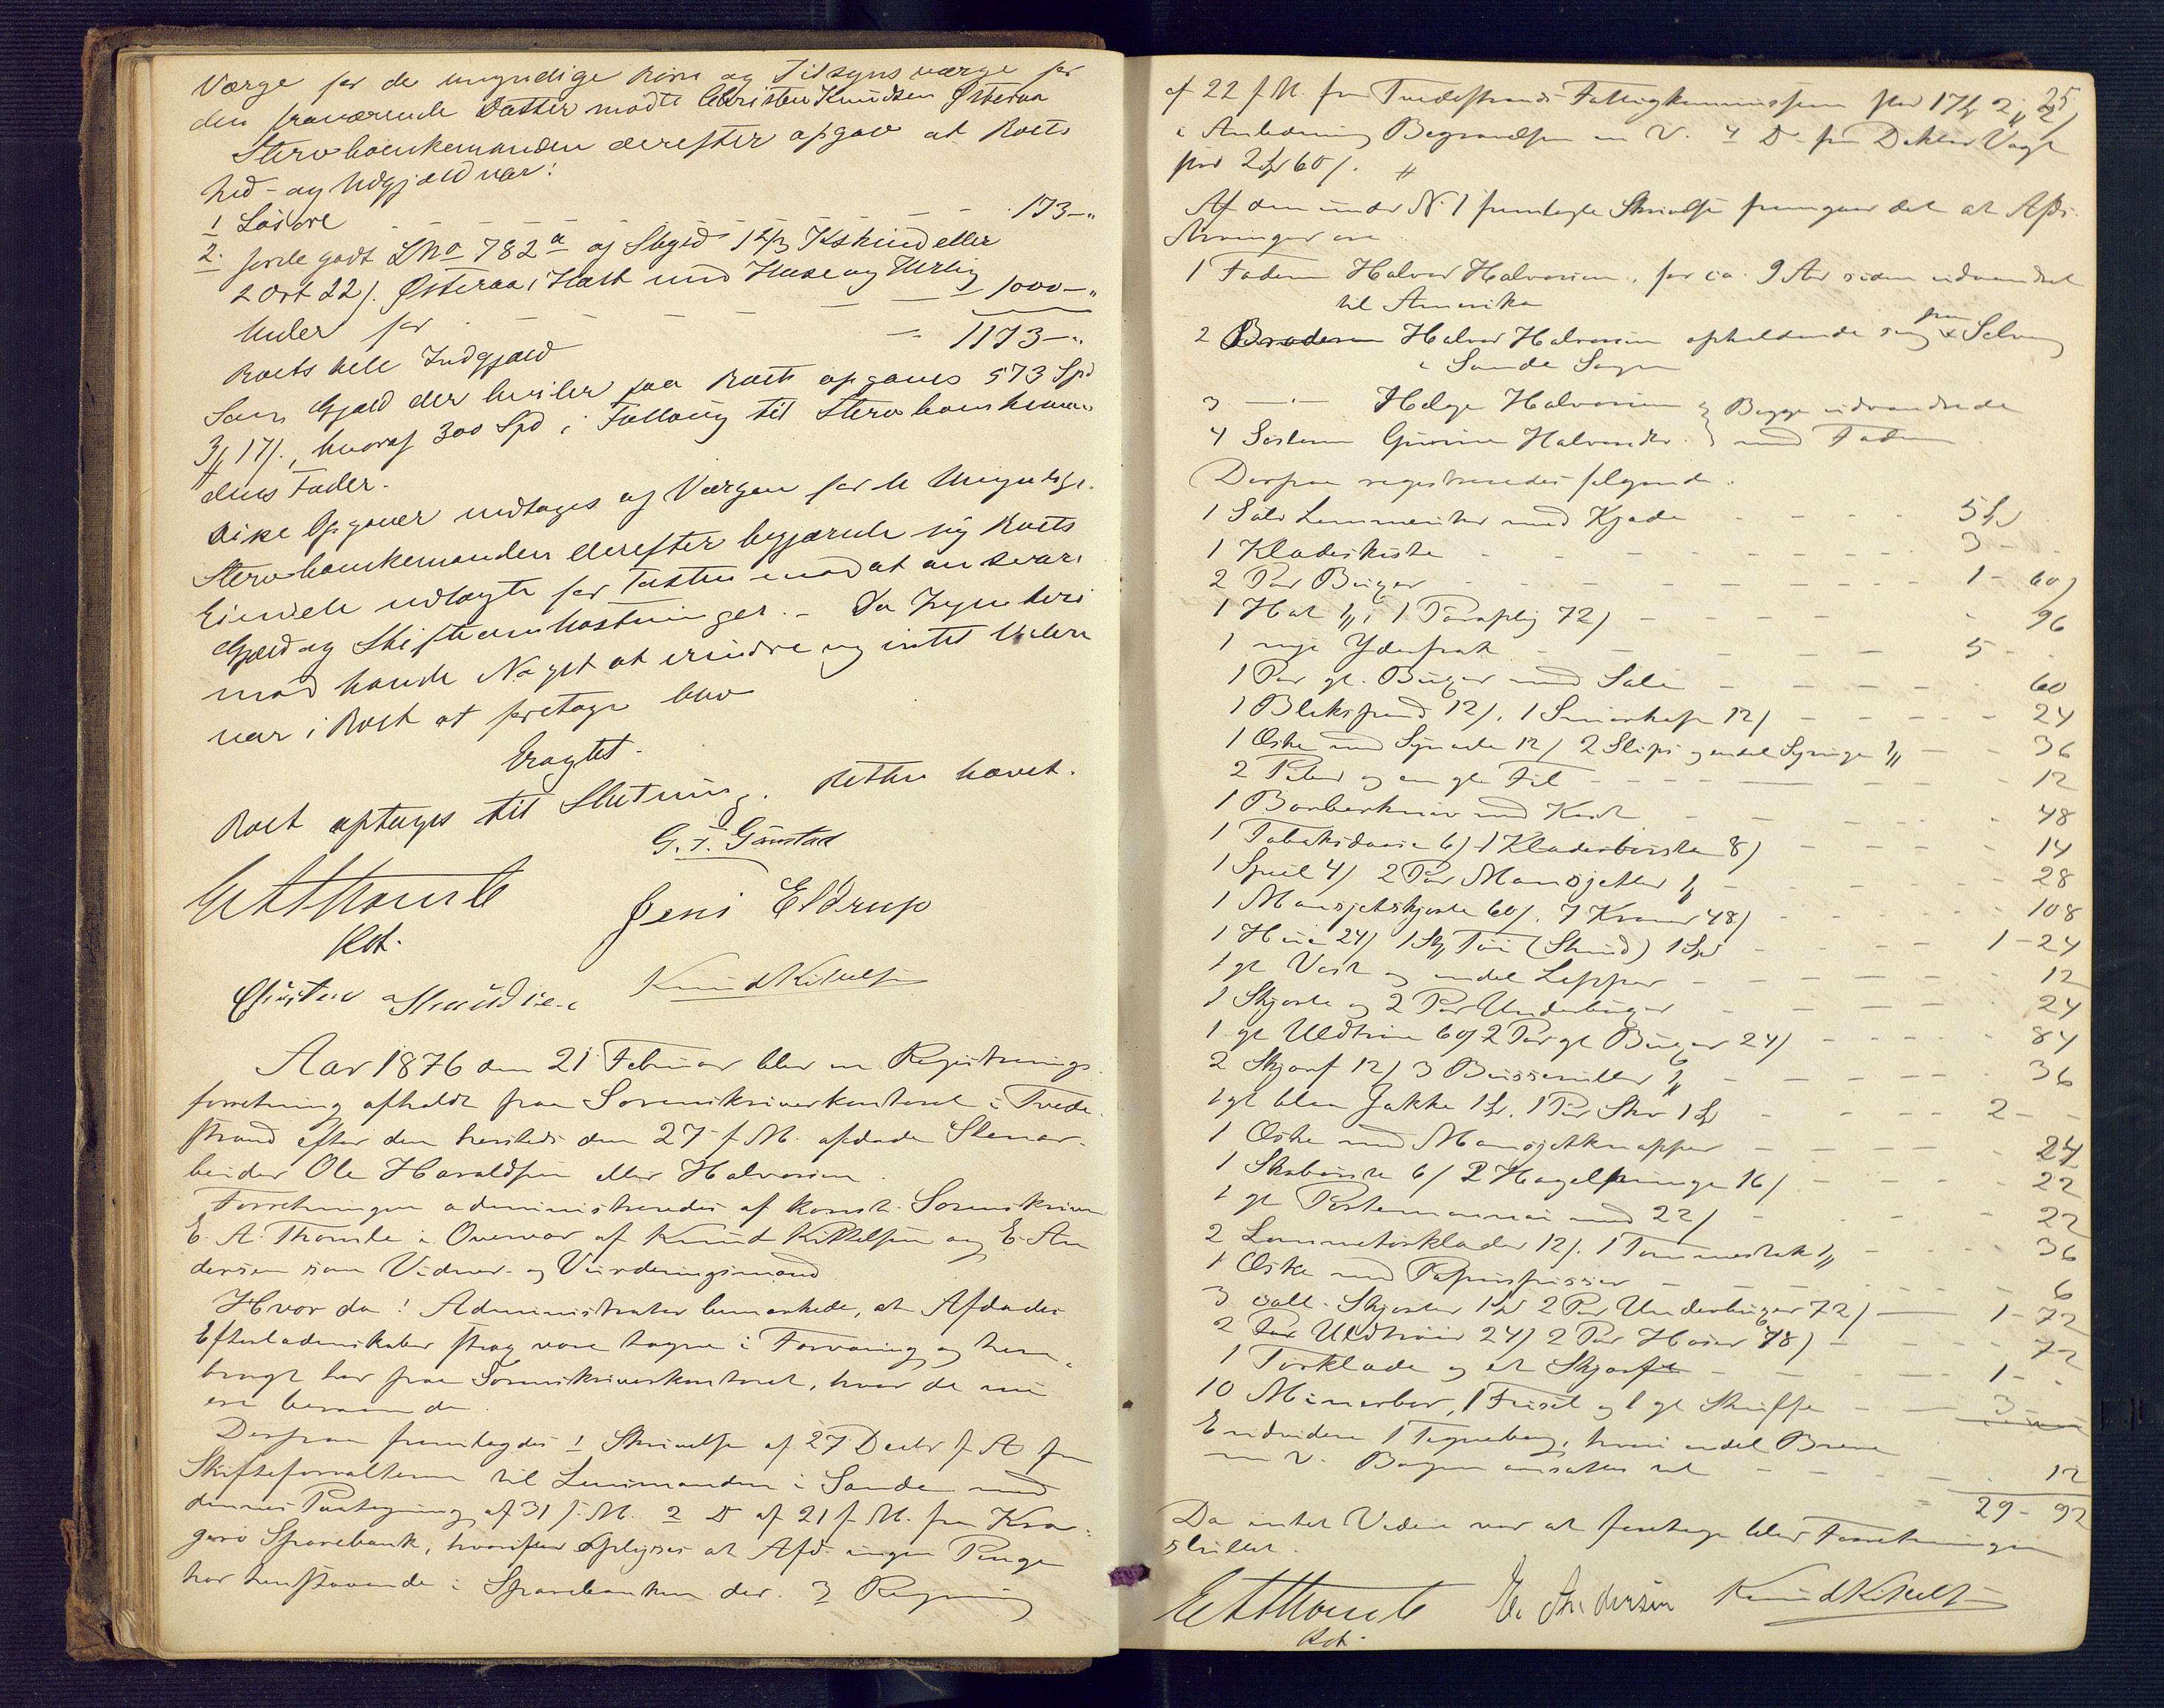 Værge for de umyndige Børn og Tilsynsværge for
den fraværende Datter mødte Christen Knudsen Østeraa
Stervboenkemanden derefter opgav at Boets
Ind- og Udgjæld var:
1 Løsøre - - - - - - - 173-"
2. Jordegodt LNo 782a af Skyld 1 2/3 Kskind eller
2 Ort 22/. Østeraa i Holt med Huse og Herlig
heder for - - - - - - 1000-"
Boets hele Indgjæld - 1173-"
Som Gjæld der hviler paa Boet opgaves 573 Spd
3/ 17/., hvoraf 300 Spd i Følloug til Stervboenkeman
dens Fader.
Disse Opgaver vedtoges af Værgen for de Umyndige.
Stervboenkemanden derefter begjærede sig Boets
Eiendele udlagte for Taxten imod at ansvare
Gjæld og Skifteomkostninger. - Da Ingen heri
mod havde Noget at erindre og intet Videre
var i Boet at foretage blev
Eragtet.
Boet optages til Slutning. Retten hævet.
G. T. Gonstad
E A Thomle Jens Eldrup
Kst.
Christen Knudsen Knud Kittelsen
Aar 1876 den 21 Februar blev en Registrerings
forretning afholdt paa Sorenskriverkontoret i Tvede-
strand efter den hersteds den 27 f. M. afdøde Stenar-
beider Ole Haraldsen eller Halvorsen.
Forretningen administreredes af konst. Sorenskriver
E. A. Thomle i Overvær af Knud Kittelsen og E. An
dersen som Vidner- og Vurderingsmænd
Hvor da! Administrator bemærkede, at Afdødes
Efterladenskaber strax vare tagne i Forvaring og hen-
bragt her paa Sorenskriverkontoret, hvor de nu
ere beroende.
Derpaa fremlagdes 1 Skrivelse af 27 Decbr f A fra
Skifteforvalteren til Lensmanden i Sande med
dennes Paategning af 31 f. M. 2 Do af 21 f. M. fra Kra-
gerø Sparebank, hvorefter oplyses at Afd. ingen Penge
har henstaaende i Sparebanken der. 3 Regning
af 22 f. M. fra Tvedestrands Fattigkommission stor 17 2,, 25
i Anledning Begravelsen m V. 4 Do fra Doktor Vogt
stor 2 Spd 60/. #
Af den under No 1 fremlagte Skrivelse fremgaar det at Afds.
Arvinger ere
1 Faderen Halvor Halvorsen, for ca. 9 Aar siden udvandret
til Amerika
2 Broderen Halvor Halvorsen opholdende sig paa Selvng
i Sande Sogn
3 - " - Helge Halvorsen } Begge udvandrede
4 Søsteren Gurine Halvorsdtr. } med Faderen
Derpaa registreredes følgende.
1 Sølv Lommeuhr med Kjæde - - - - 5 Spd
1 Klædeskiste - - - - - - 3 - -
2 Par Buxer - - - - - - 1 - 60/
1 Hat ; 1 Paraply 72/ - - - - 96
1 nye Yderfrak - - - - - 5 - .
1 Par gl. Buxer med Sele - - - - 60
1 Blikspand 12/. 1 Smørkop 12/ - - - - 24
1 Æske med Synaale 12/ 2 Slips og endel Syringe - - 36
2 Piber og en gl. Fil - - - - 12
1 Barberkniv med Kost - - - - 48
1 Tobaksdaase 6/ 1 Klædesbørste 8/ - - - 14
1 Speil 4/ 2 Par Mansjetter - - - 28
1 Mansjetskjorte 60/. 7 Kraver 48/ - - - 108
1 Hue 24/ 1 St Tøi (Skind) 1 Spd - - 1 - 24
1 gl Vest og endel Lapper - - - - 12
1 Skjorte og 2 Par Underbuxer - - - - 24
1 gl Uldtrøie 60/ 2 Par gl Buxer 24/ - - - 84
2 Skjærf 12/ 3 Busseruller - - - - 36
1 gl blaa Jakke 1 Spd. 1 Par Sko 1 Spd - - - 2 - -
1 Æske med Mansjetknapper - - - - 24
1 Skobørste 6/ 2 Hagelpunge 16/ - - - 22
1 gl Portemonnai med 22/ - - - - 22
2 Lommetørklæder 12/. 1 Tommestok - - - 36
1 Æske med Papirspidser - - - - 6
3 Skjorter 1 Spd 2 Par Underbuxer 72/ - 1 - 72
2 Par Uldtrøier 24/ 2 Par Hoser 48/ - - - 72
1 Tørklæde og et Skjærf - - - - 1 - .
10 Minerbor, 1 Feisel og 1 gl Skuffe - - 3 -
Endvidere 1 Tegnebog, hvori endel Breve
m V. Bogen ansattes til - - - - 12
29 - 92
Da intet Videre var at foretage blev Forretningen
sluttet.
E A Thomle E. Andersen Knud Kittelsen
Kst.